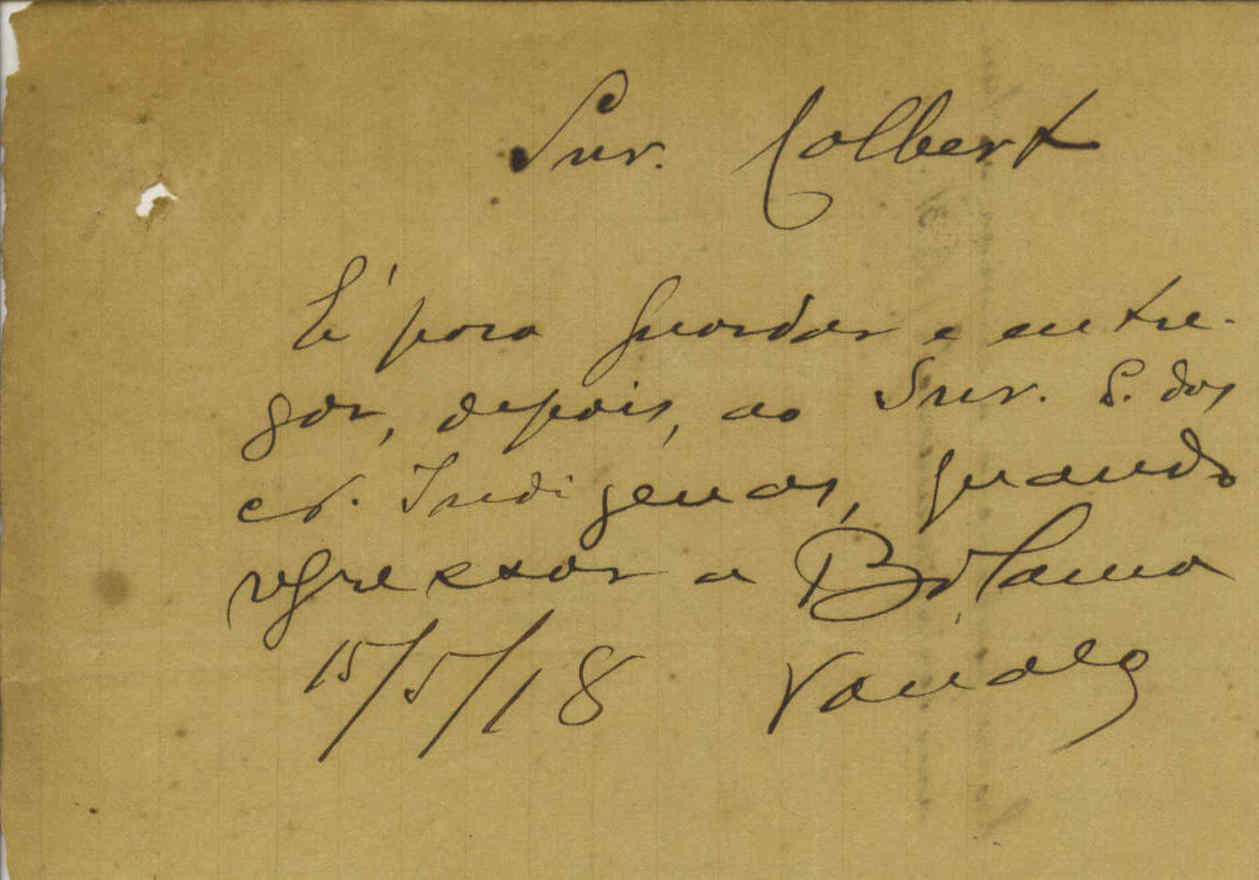 Snr. Colbert
É para guardar e entre-
gar, depois, ao Snr. S. dos
Indigenas, quando
regressar a Bolama
15/5/18